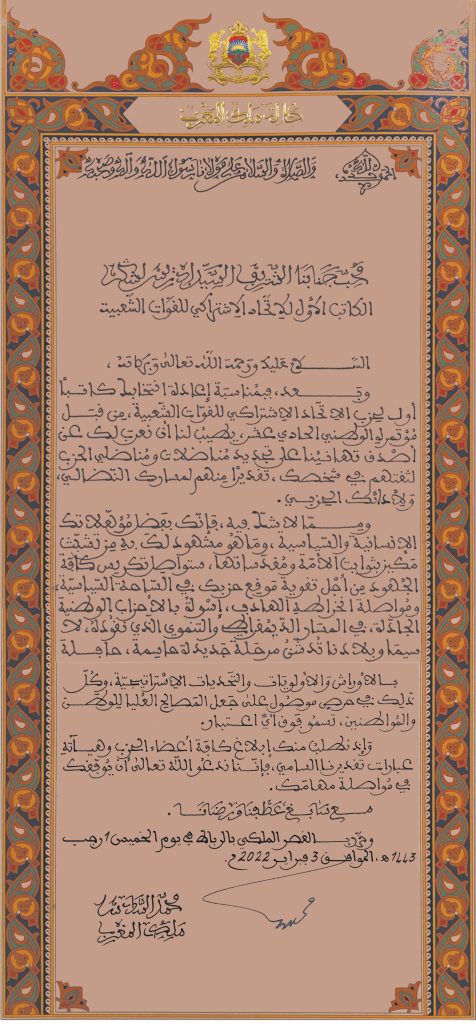 جلالة ملك المغرب
الحمد لله وحده
والصلاة والسلام على مولانا رسول الله وآله وصحبه
محب جنابنا الشريف السيد ادريس لشكر
الكاتب الأول للاتحاد الاشتراكي للقوات الشعبية
السلام عليك ورحمة الله تعالى وبركاته،
وبعد، فبمناسبة إعادة انتخابك كاتبا
أول لحزب الاتحاد الاشتراكي للقوات الشعبية، من قبل
مؤتمره الوطني الحادي عشر، يطيب لنا أن نعرب لك عن
أصدق تهانينا على تجديد مناضلات ومناضلي الحزب
لثقتهم في شخصك، تقديرا منهم لمسارك النضالي،
ولأدائك الحزبي.
ومما لا شك فيه، فإنك بفضل مؤهلاتك
الإنسانية والسياسية، وما هو مشهود لك به من تشبث
مكين بثوابت الأمة ومقدساتها، ستواصل تكريس كافة
الجهود من أجل تقوية موقع حزبك في الساحة السياسية،
ومواصلة انخراطه الهادف، إسوة بالأحزاب الوطنية
الجادة، في المسار الديمقراطي والتنموي الذي نقوده، لا
سيما وبلادنا تدشن مرحلة جديدة حاسمة، حافلة
بالأوراش والأولويات والتحديات الاستراتيجية، وكل
ذلك في حرص موصول على جعل المصالح العليا للوطن
والمواطنين، تسمو فوق أي اعتبار.
وإذ نطلب منك إبلاغ كافة أعضاء الحزب وهيآته
عبارات تقديرنا السامي، فإننا ندعو الله تعالى أن يوفقك
في مواصلة مهامك.
مع سابغ عطفنا ورضانا.
وحرر بالقصر الملكي بالرباط في يوم الخميس 1 رجب
1443هـ، الموافق 3 فبراير 2022م.
محمد السادس
ملك المغرب